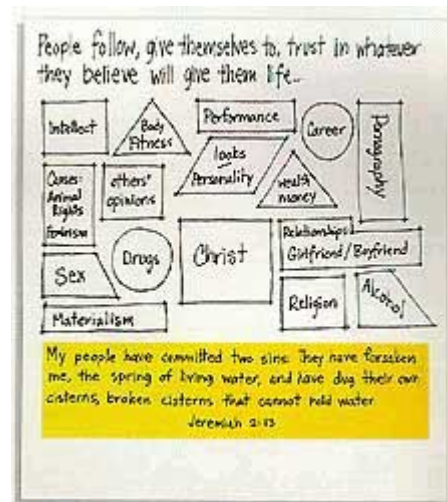 People follow, give themselves to, trust in whatever
they believe will give them life...
Intellect
Body
Fitness
Performance
Career
Pornography
looks
Personality
Wealth
money
Causes:
Animal
Rights
Feminism
others'
opinions
Sex
Drugs
Christ
Relationships
Girlfriend/Boyfriend
Religion
Alcohol
Materialism
My people have committed two sins: They have forsaken
me, the spring of living water, and have dug their own
cisterns, broken cisterns that cannot hold water.
Jeremiah 2:13